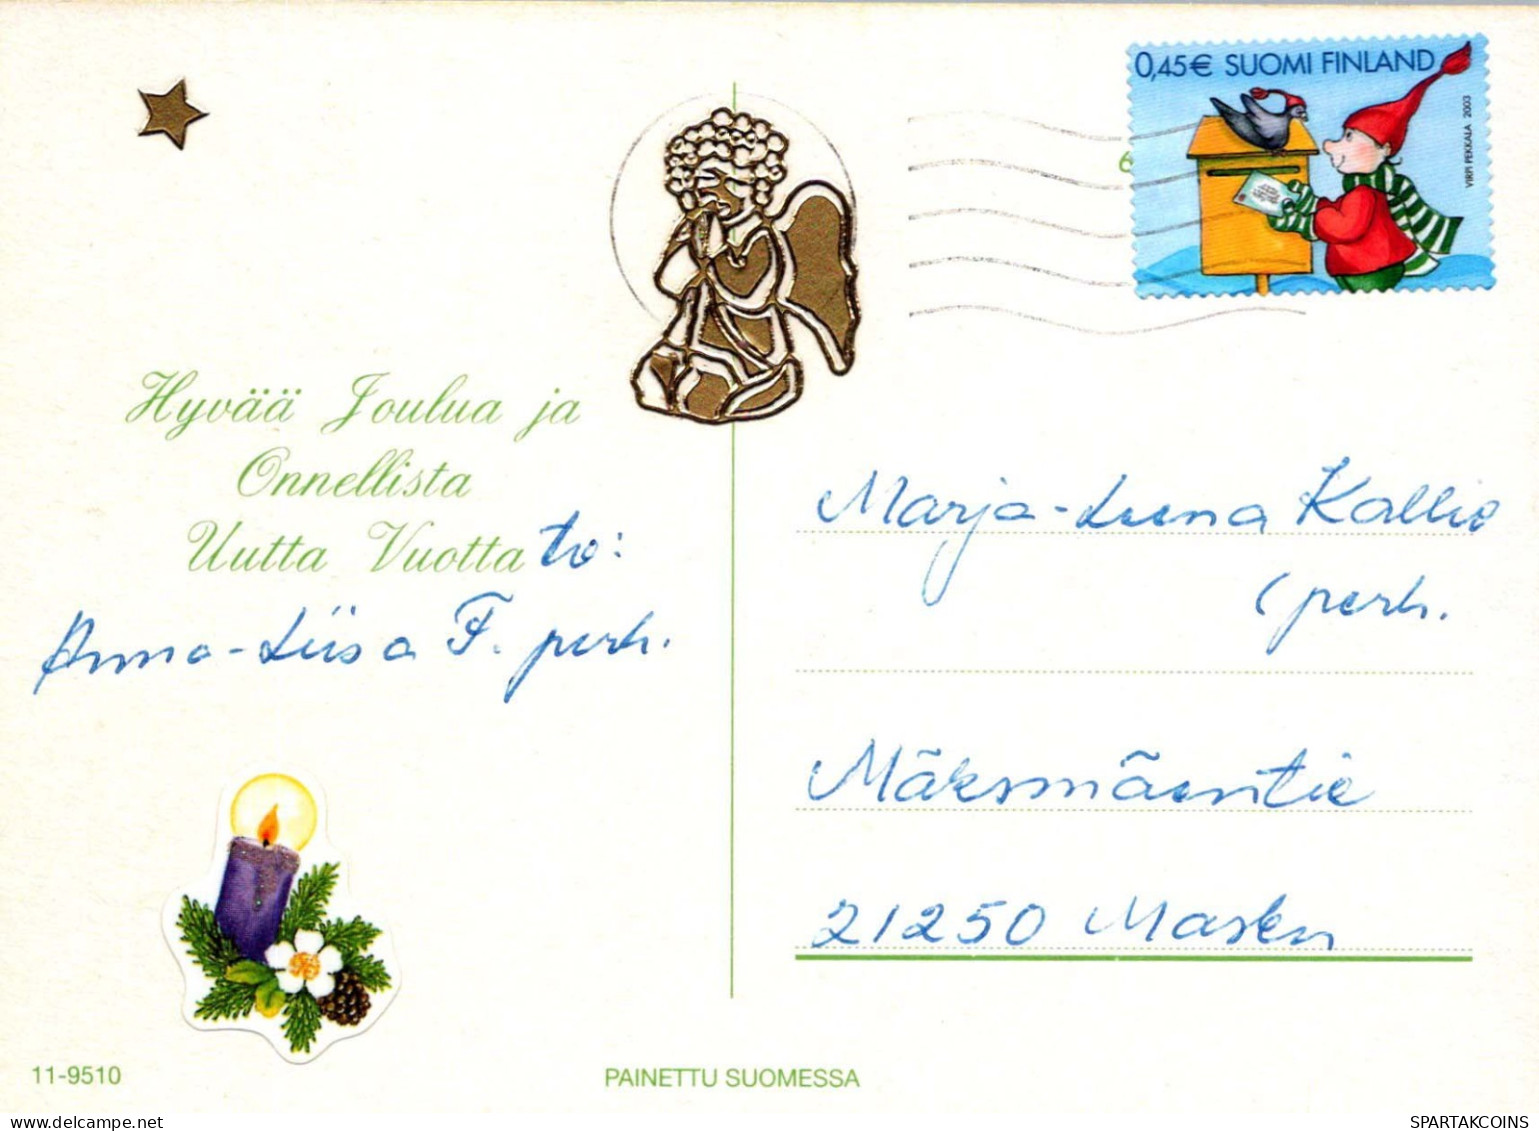 0,45€ SUOMI FINLAND
VIRPI PEKKALA 2003
Hyvää Joulua ja
Onnellista
Uutta Vuotta tv:
Anna-Liisa F. perh.
Marja-Leena Kallio
perh.
Mäksmäentie
21250 Masku
11-9510
PAINETTU SUOMESSA
SPARTAKCOINS